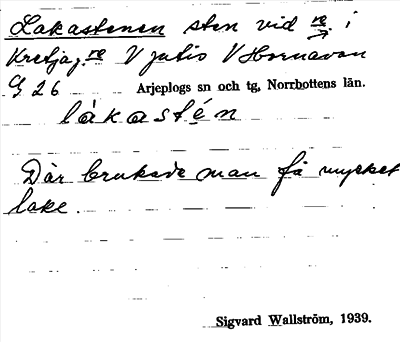 Lakastenen sten vid ne i
Kretja, ne V Jutis V Hornavan
G 26 Arjeplogs sn och tg, Norrbottens län.
làkastén
Där brukade man få mycket
lake.
Sigvard Wallström, 1939.